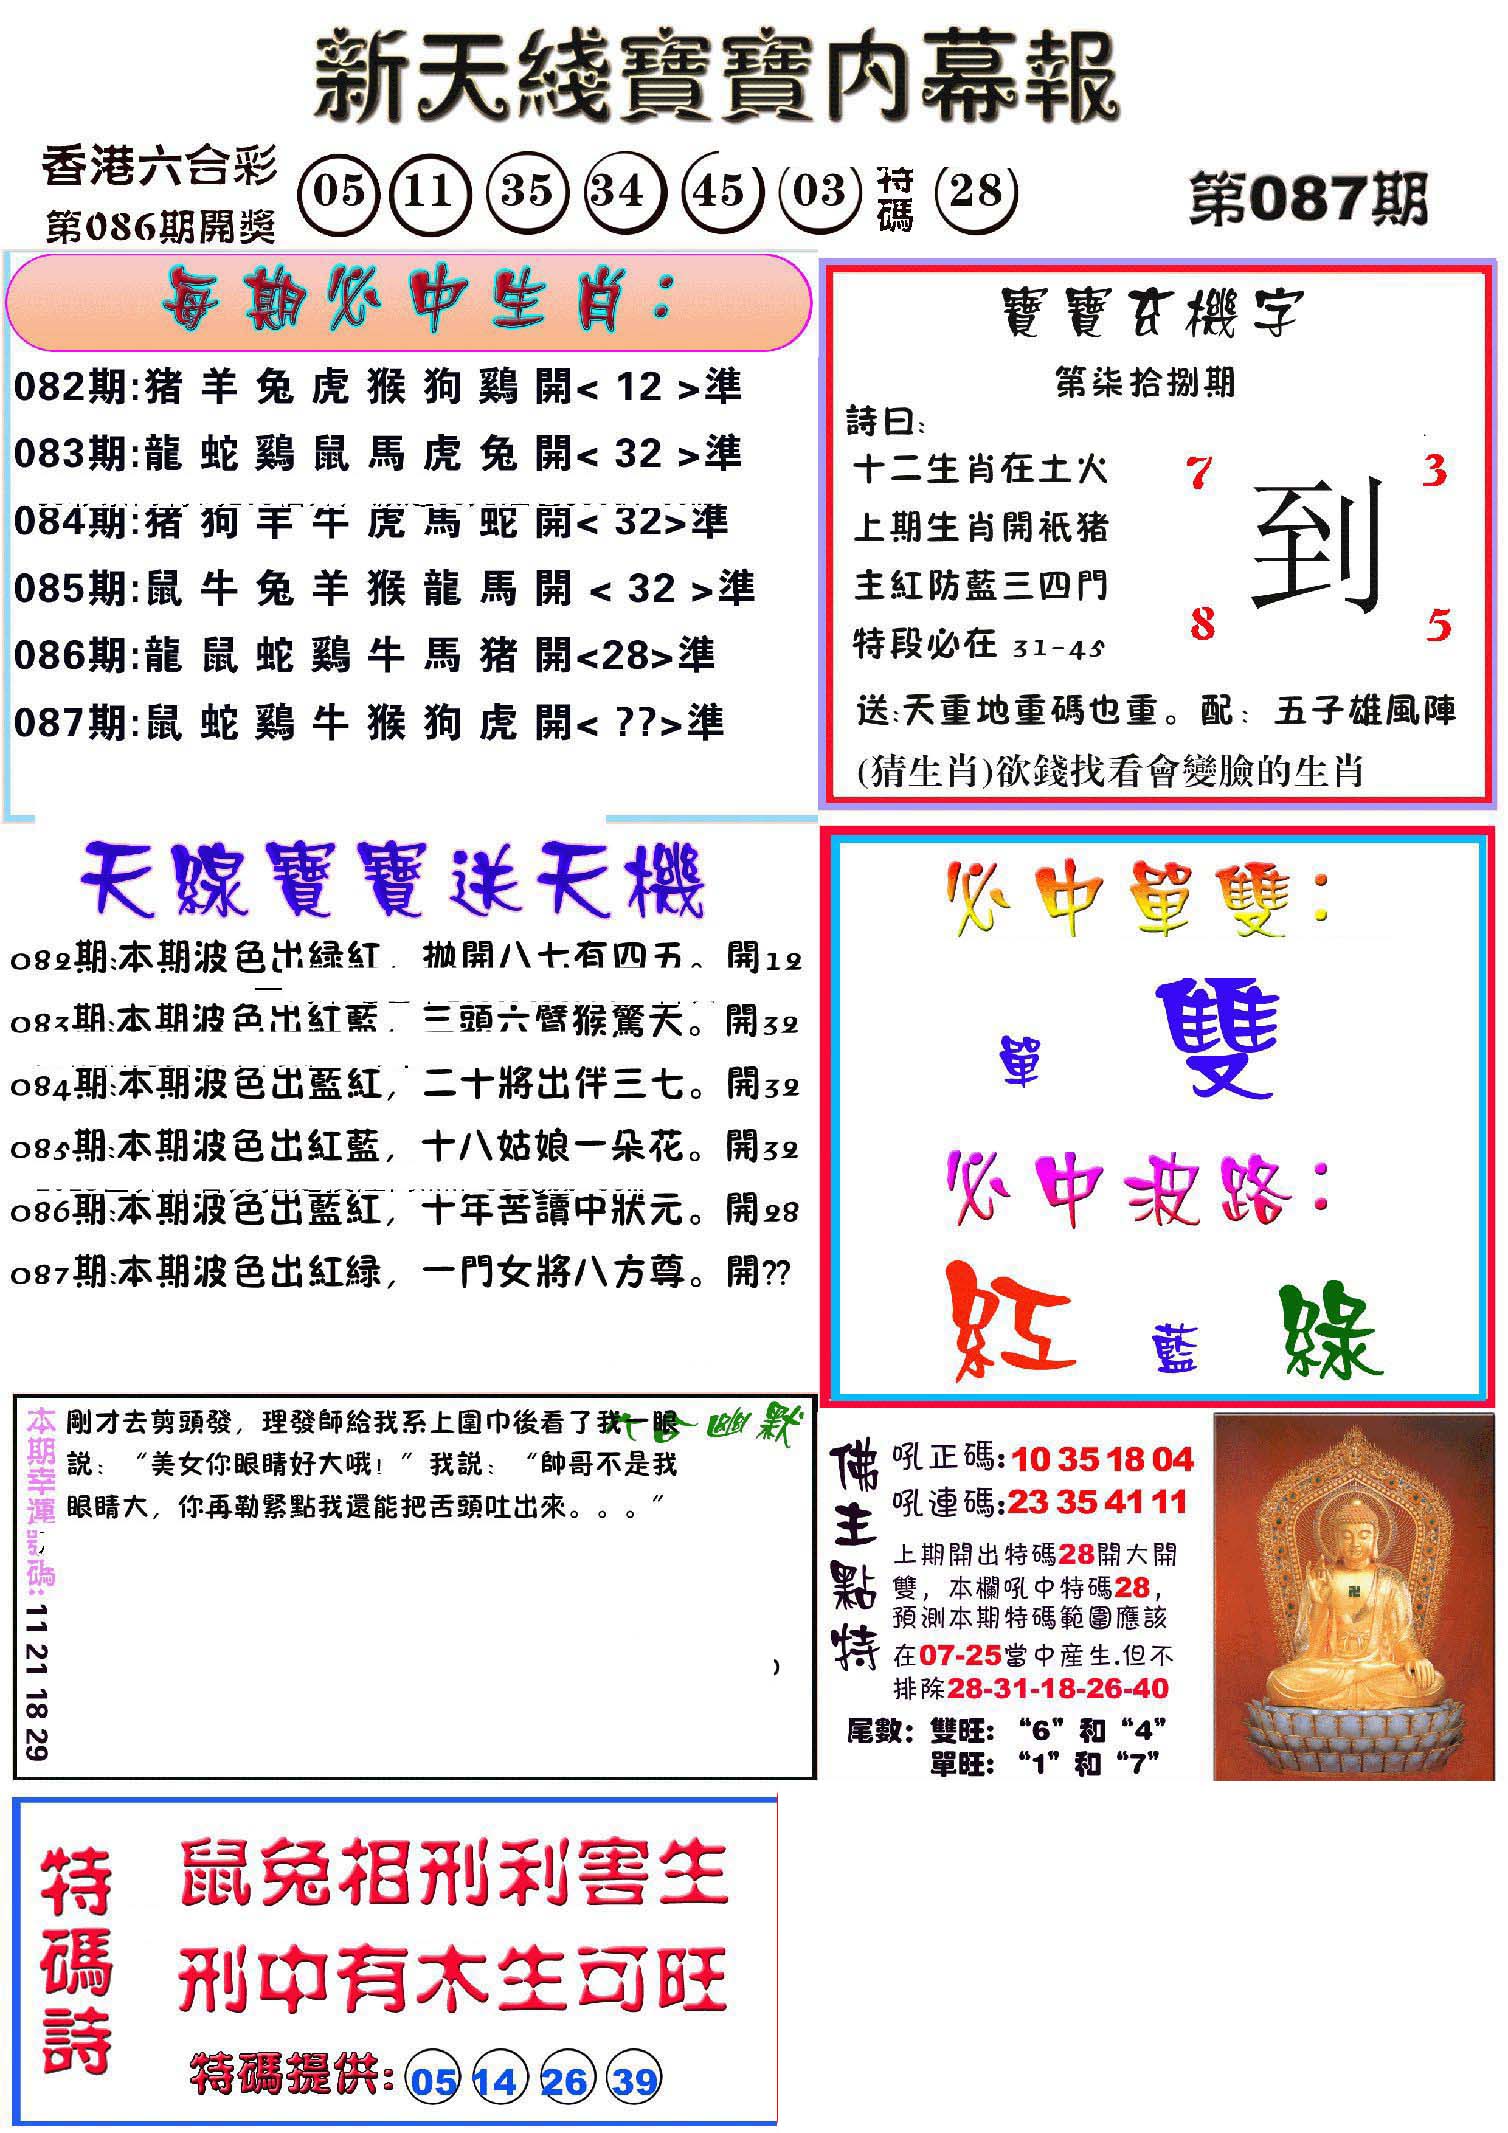 新天綫寶寶内幕報
香港六合彩
第086期開獎
05 11 35 34 45 03 特碼 28
第087期
每期必中生肖：
082期:猪 羊 兔 虎 猴 狗 鷄 開< 12 >準
083期:龍 蛇 鷄 鼠 馬 虎 兔 開< 32 >準
084期:猪 狗 羊 牛 虎 馬 蛇 開< 32>準
085期:鼠 牛 兔 羊 猴 龍 馬 開 < 32 >準
086期:龍 鼠 蛇 鷄 牛 馬 猪 開<28>準
087期:鼠 蛇 鷄 牛 猴 狗 虎 開< ??>準
寶寶玄機字
第柒拾捌期
詩曰:
十二生肖在土火
上期生肖開祇猪
主紅防藍三四門
特段必在 31-45
7 3
到
8 5
送:天重地重碼也重。配：五子雄風陣
(猜生肖)欲錢找看會變臉的生肖
天線寶寶送天機
082期:本期波色出緑紅，抛開八七有四五。開12
083期:本期波色出紅藍，三頭六臂猴驚天。開32
084期:本期波色出藍紅，二十將出伴三七。開32
085期:本期波色出紅藍，十八姑娘一朵花。開32
086期:本期波色出藍紅，十年苦讀中狀元。開28
087期:本期波色出紅緑，一門女將八方尊。開??
必中單雙：
單 雙
必中波路：
紅 藍 綠
本期幸運號碼: 11 21 18 29
六合幽默
剛才去剪頭發，理發師給我系上圍巾後看了我一眼
説：“美女你眼睛好大哦！”我説：“帥哥不是我
眼睛大，你再勒緊點我還能把舌頭吐出來。。。”
佛主點特
吼正碼:10 35 18 04
吼連碼:23 35 41 11
上期開出特碼28開大開
雙，本欄吼中特碼28，
預測本期特碼範圍應該
在07-25當中産生.但不
排除28-31-18-26-40
尾數：雙旺：“6”和“4”
單旺：“1”和“7”
特碼詩
鼠兔相刑利害生
刑中有木生可旺
特碼提供: 05 14 26 39